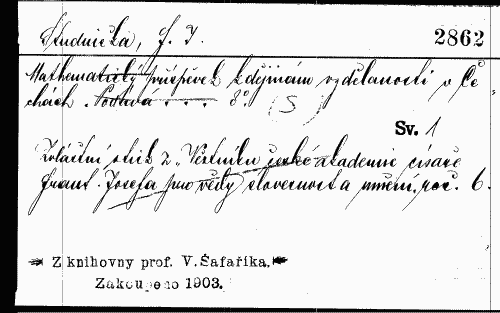 Studnička, F. J.
2862
Mathematický příspěvek k dějinám vzdělanosti v Če-
chách. . . . 8°. (S)
Sv. 1
Zvláštní otisk z „Věstníku české akademie císaře
Frant. Josefa pro vědy slovesnost a umění, roč. 6.
Z knihovny prof. V. Šafaříka.
Zakoupeno 1903.